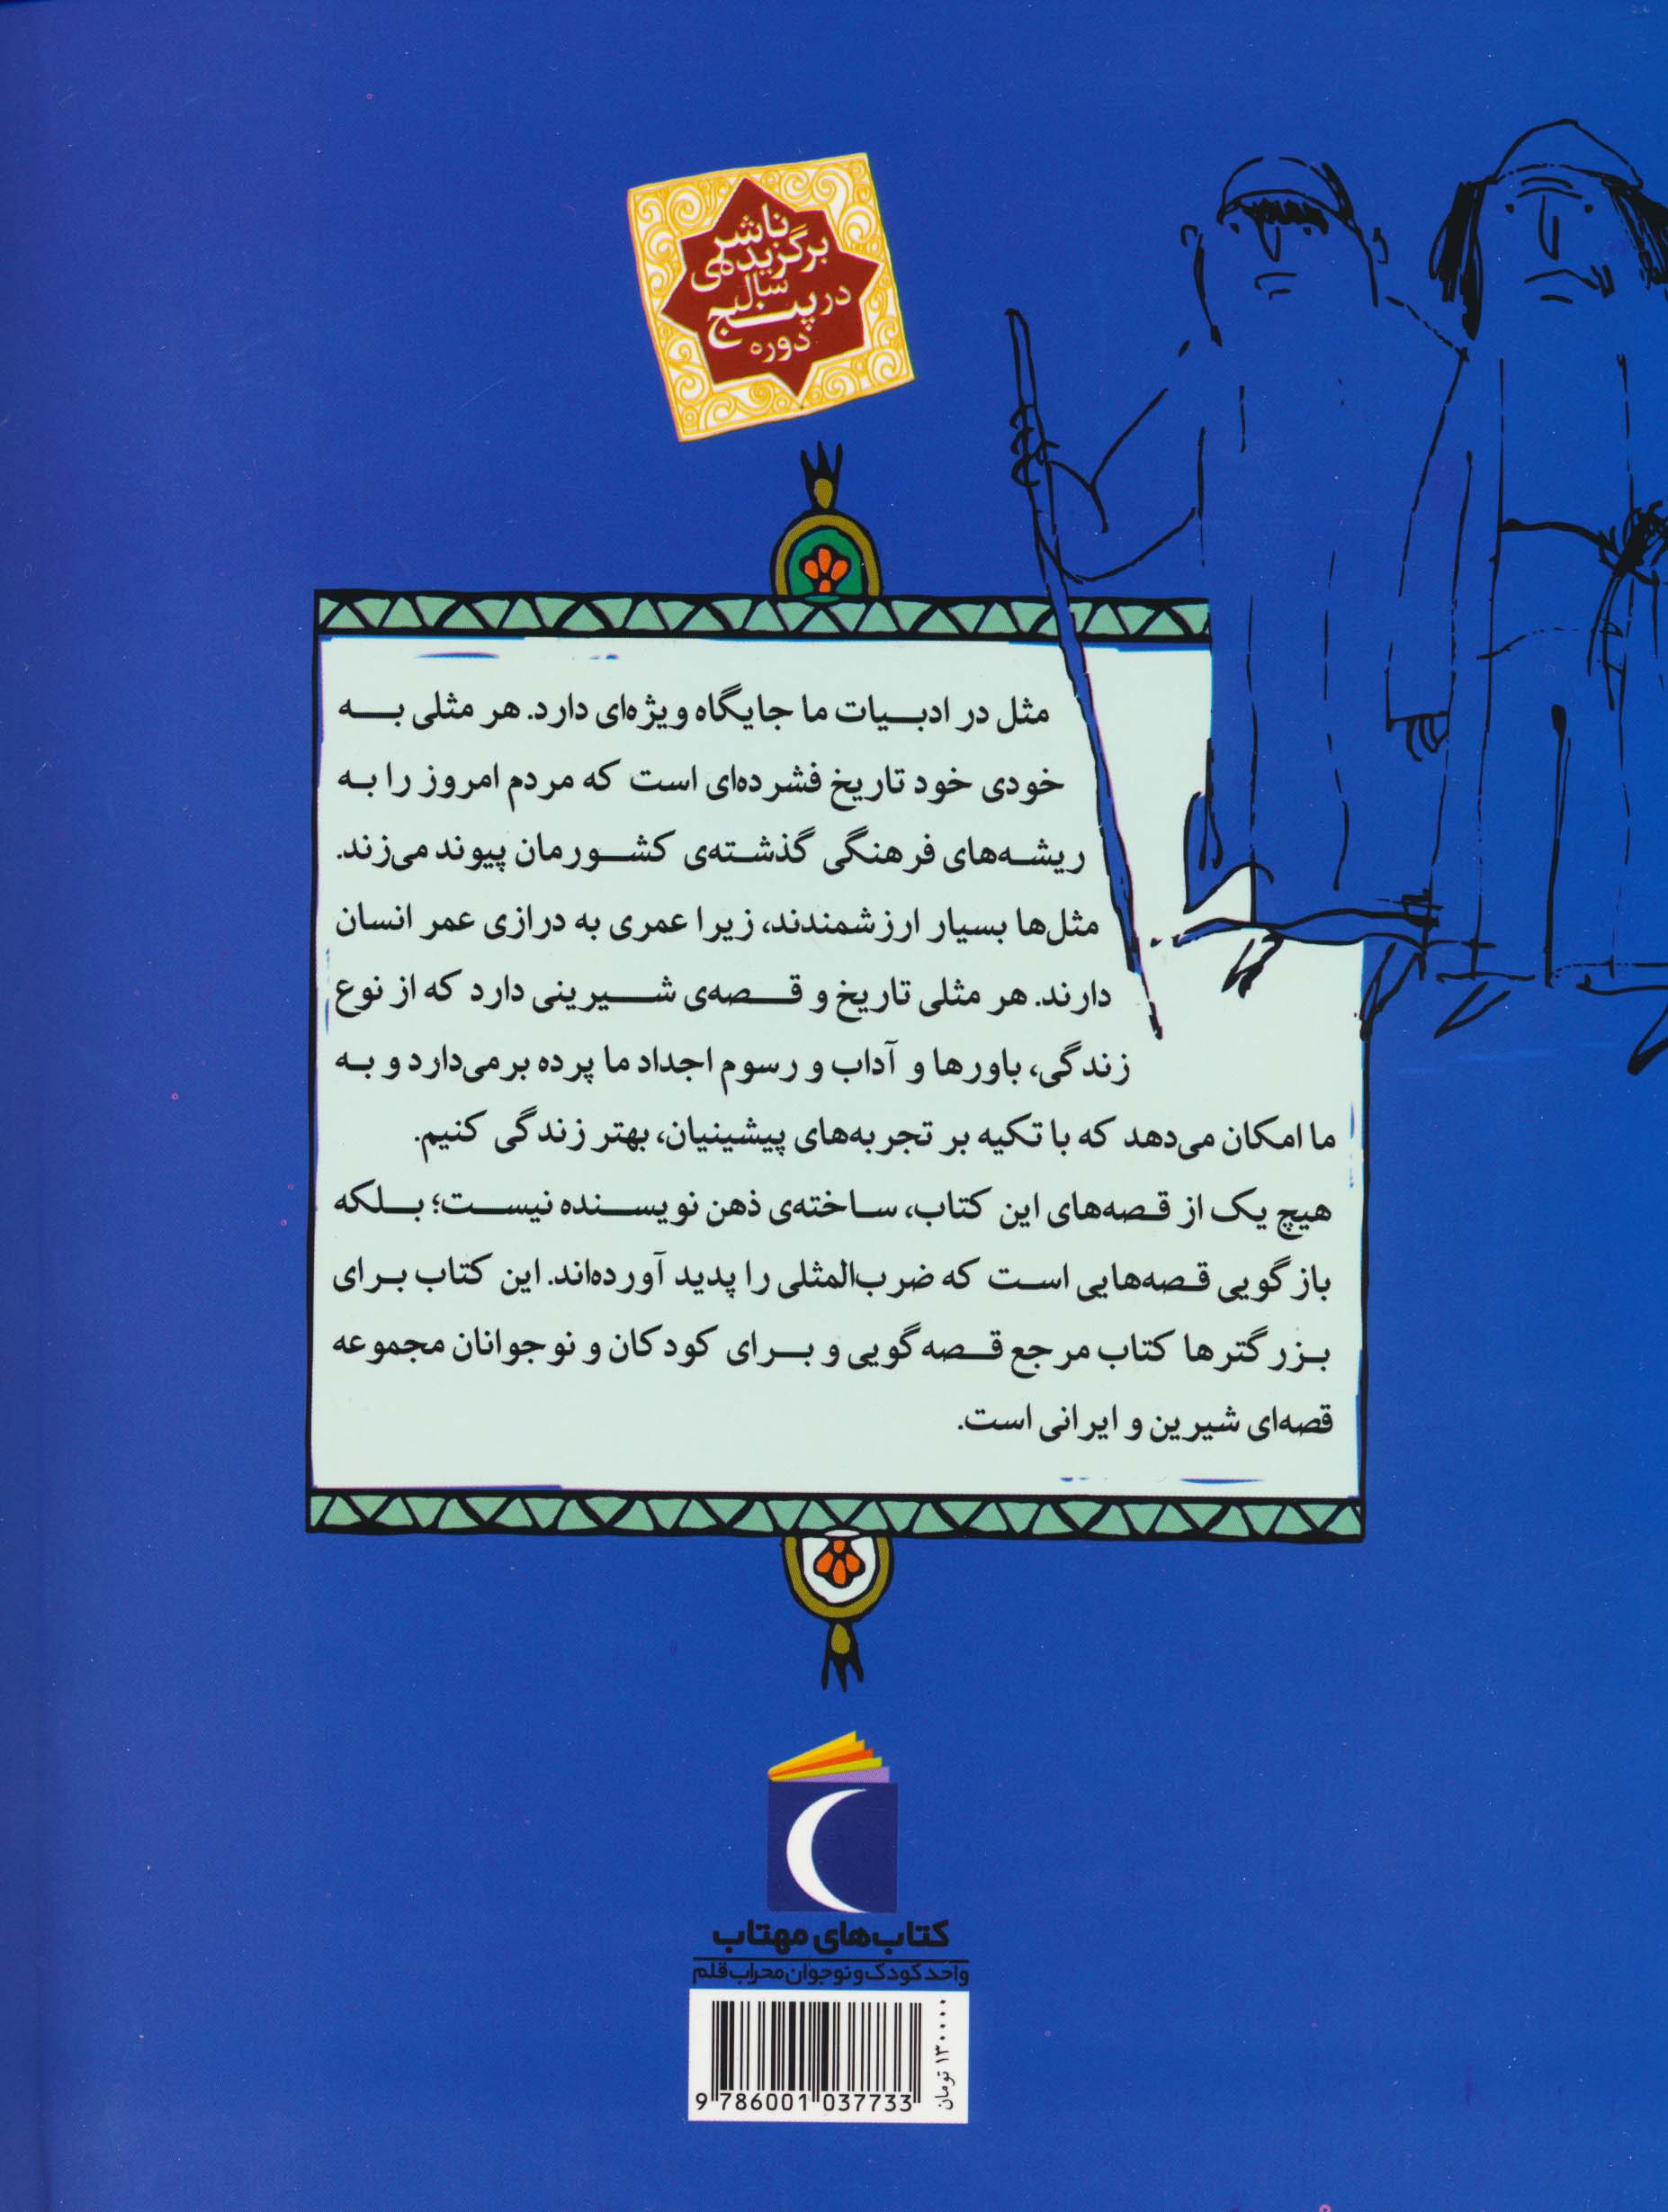 ناشر
برگزیده‌ی
سال
در پنج
دوره
مثل در ادبیات ما جایگاه ویژه‌ای دارد. هر مثلی به
خودی خود تاریخ فشرده‌ای است که مردم امروز را به
ریشه‌های فرهنگی گذشته‌ی کشورمان پیوند می‌زند.
مثل‌ها بسیار ارزشمندند، زیرا عمری به درازی عمر انسان
دارند. هر مثلی تاریخ و قصه‌ی شیرینی دارد که از نوع
زندگی، باورها و آداب و رسوم اجداد ما پرده برمی‌دارد و به
ما امکان می‌دهد که با تکیه بر تجربه‌های پیشینیان، بهتر زندگی کنیم.
هیچ یک از قصه‌های این کتاب، ساخته‌ی ذهن نویسنده نیست؛ بلکه
بازگویی قصه‌هایی است که ضرب‌المثلی را پدید آورده‌اند. این کتاب برای
بزرگترها کتاب مرجع قصه‌گویی و برای کودکان و نوجوانان مجموعه
قصه‌ای شیرین و ایرانی است.
کتاب‌های مهتاب
واحد کودک و نوجوان محراب قلم
۱۳۰۰۰۰ تومان
9 786001 037733